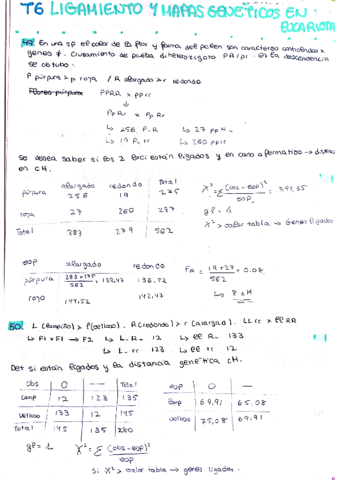 T6 LIGAMIENTO Y MAPAS GENÉTICOS EN EUCARIOTA
49. En una sp el color de la flor y forma del polen son caracteres controlados x
genes ≠. Cruzamiento de prueba diheterozigoto PR/pr. En la descendencia
se obtubo:
P púrpura > p roja / R alargado > r redondo
PPRR x pprr
↓
PpRr x PpRr
↳ 256 P-R ↳ 27 ppR-
↳ 19 P-rr ↳ 260 pprr
se desea saber si los 2 loci están ligados y en caso afirmativo → distan
en cM.
alargado redondo Total
púrpura 256 19 275
roja 27 260 287
Total 283 279 562
X² = Σ (obs-esp)² / esp
gl = 1
X² > valor tabla → genes ligados
esp alargado redondo
púrpura 283 x 275 / 562 = 138,47 136,52
rojo 144,52 142,47
FR = 19+27 / 562 = 0.08
↳ 8 cM
50. L (lampiño) > l (velloso). R (redondo) > r (alargado). LLrr x llRR
↳ F1 x F1 → F2 ↳ L-R- 12 ↳ llR- 133
↳ L-rr 123 ↳ llrr 12
Det si están ligados y la distancia genética cM.
Obs 0 — Total
Lamp 12 123 135
Velloso 133 12 145
Total 145 135 280
esp 0 —
lamp 69.91 65.08
velloso 75,08 69.91
gl = 1 X² = Σ (obs-esp)² / esp
si X² > valor tabla → genes ligados.